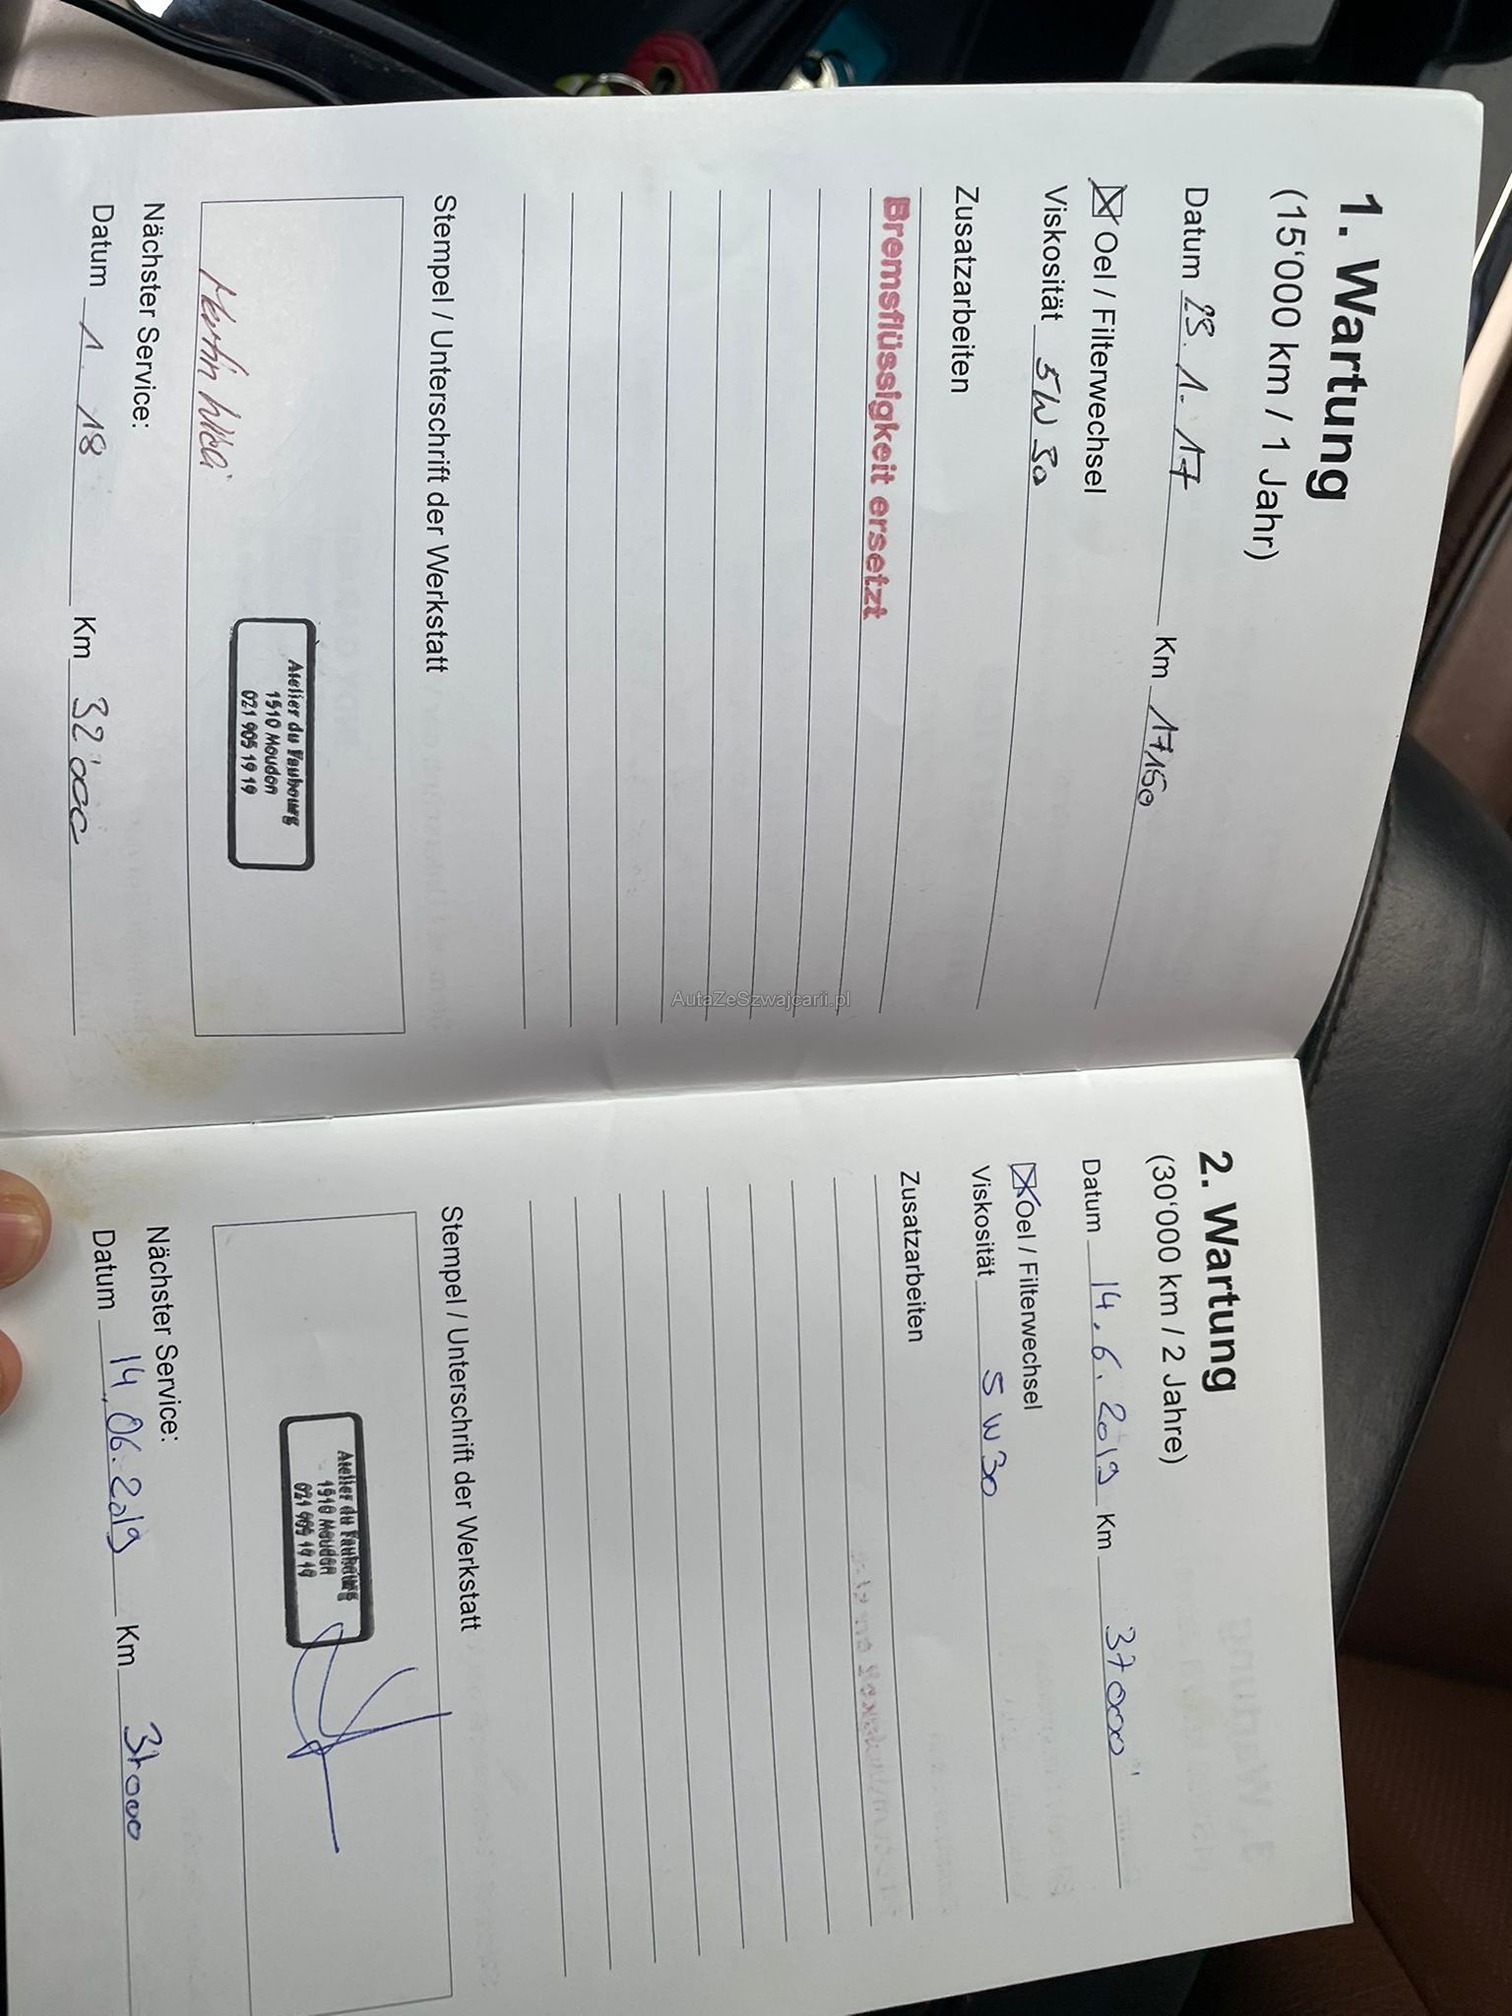 1. Wartung
(15'000 km / 1 Jahr)
Datum 23. 1. 17 Km 17150
Oel / Filterwechsel
Viskosität 5W30
Zusatzarbeiten
Bremsflüssigkeit ersetzt
Stempel / Unterschrift der Werkstatt
Atelier du Faubourg
1510 Moudon
021 905 19 19
Nächster Service:
Datum 1. 18 Km 32'000
2. Wartung
(30'000 km / 2 Jahre)
Datum 14.6.2019 Km 37000
Oel / Filterwechsel
Viskosität 5W30
Zusatzarbeiten
Stempel / Unterschrift der Werkstatt
Atelier du Faubourg
1510 Moudon
021 905 19 19
Nächster Service:
Datum 14.06.2019 Km 37000
AutaZeSzwajcarii.pl